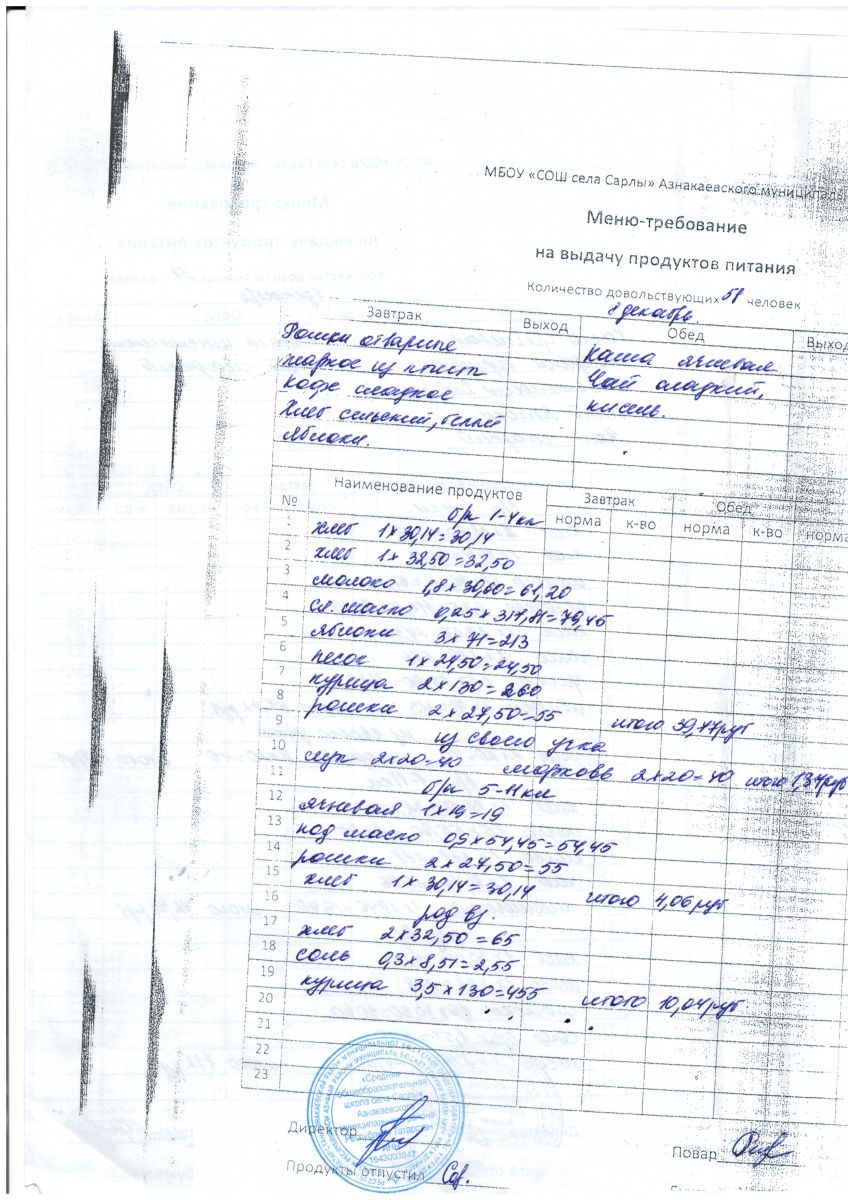 МБОУ «СОШ села Сарлы» Азнакаевского муниципаль
Меню-требование
на выдачу продуктов питания
Количество довольствующих 58 человек
8 декабрь
Завтрак Выход Обед Выход
Рошки отварные каша ячневая
жаркое из птицы Чай сладкий,
Кофе сладкое кисель.
Хлеб сельский, белый
Яблоки.
№ Наименование продуктов Завтрак Обед
норма к-во норма к-во норма
б/р 1-4кл
1 хлеб 1х30,14=30,14
2 хлеб 1х32,50=32,50
3 молоко 1,8х30,60=61,20
4 сл. масло 0,25х317,81=79,45
5 яблоки 3х71=213
6 песок 1х24,50=24,50
7 курица 2х130=260
8 рошки 2х27,50=55 итого 39,77руб
9 из своего уч-ка
10 лук 2х20=40 морковь 2х20=40 итого 1,34руб
11 б/р 5-11кл
12 ячневая 1х19=19
13 под масло 0,9х54,45=54,45
14 рошки 2х27,50=55
15 хлеб 1х30,14=30,14 итого 4,06руб
16 род вз.
17 хлеб 2х32,50=65
18 соль 0,3х8,51=2,55
19 курица 3,5х130=455 итого 10,04руб
20
21
22
23
«Средняя
общеобразовательная
школа села Сарлы»
Азнакаевского
муниципального района
Республики Татарстан
ИНН
1643003842
Директор
Повар
Продукты отпустил